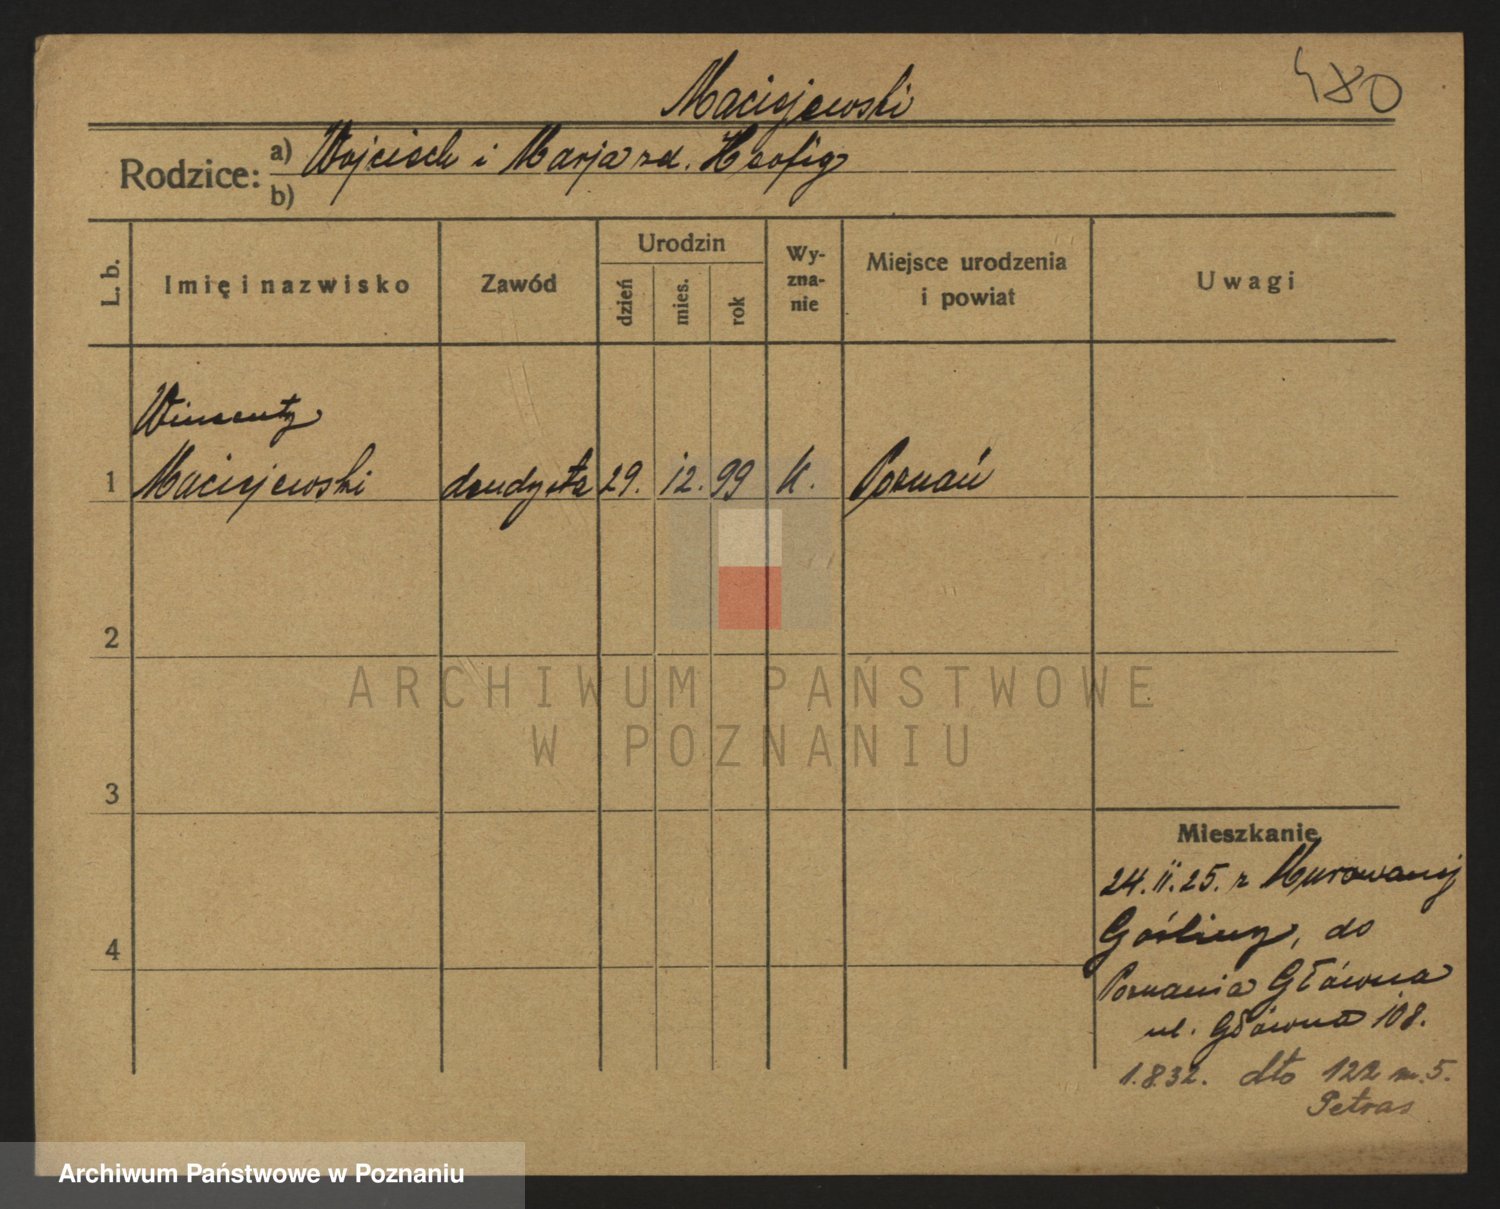 480
Maciejewski
Rodzice: a) Wojciech i Marja zd.
b)
L. b.
Imię i nazwisko
Zawód
Urodzin
dzień
mies.
rok
Wy-
zna-
nie
Miejsce urodzenia
i powiat
Uwagi
Wincenty
1 Maciejewski dendysta 29. 12. 99 K. Poznań
2
3
4
Mieszkanie
24.II.25. z Murowanej
Gośliny, do
Poznania Główna
ul. Główna 108.
1.8.32. dto 122 m. 5.
Petras
ARCHIWUM PAŃSTWOWE
W POZNANIU
Archiwum Państwowe w Poznaniu